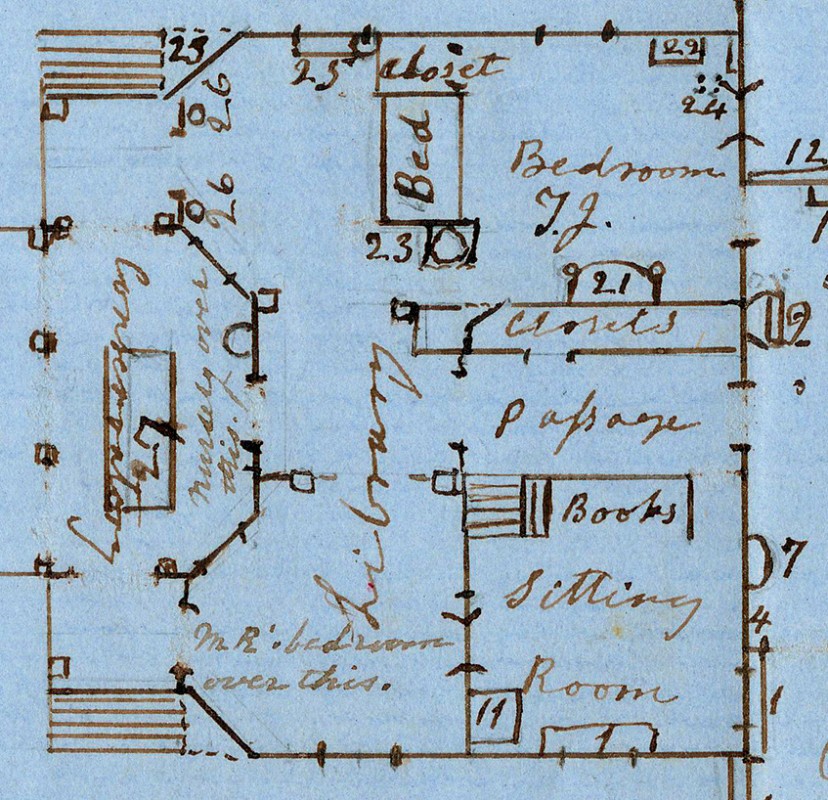 25
25
closet
22
26
24
Bed
Bedroom
T.J.
12
26
23
21
closets
2
Conservatory
27
Nursery over
this.
Library
Passage
Books
7
Sitting
4
Mr R's bedroom
over this.
Room
11
1
1